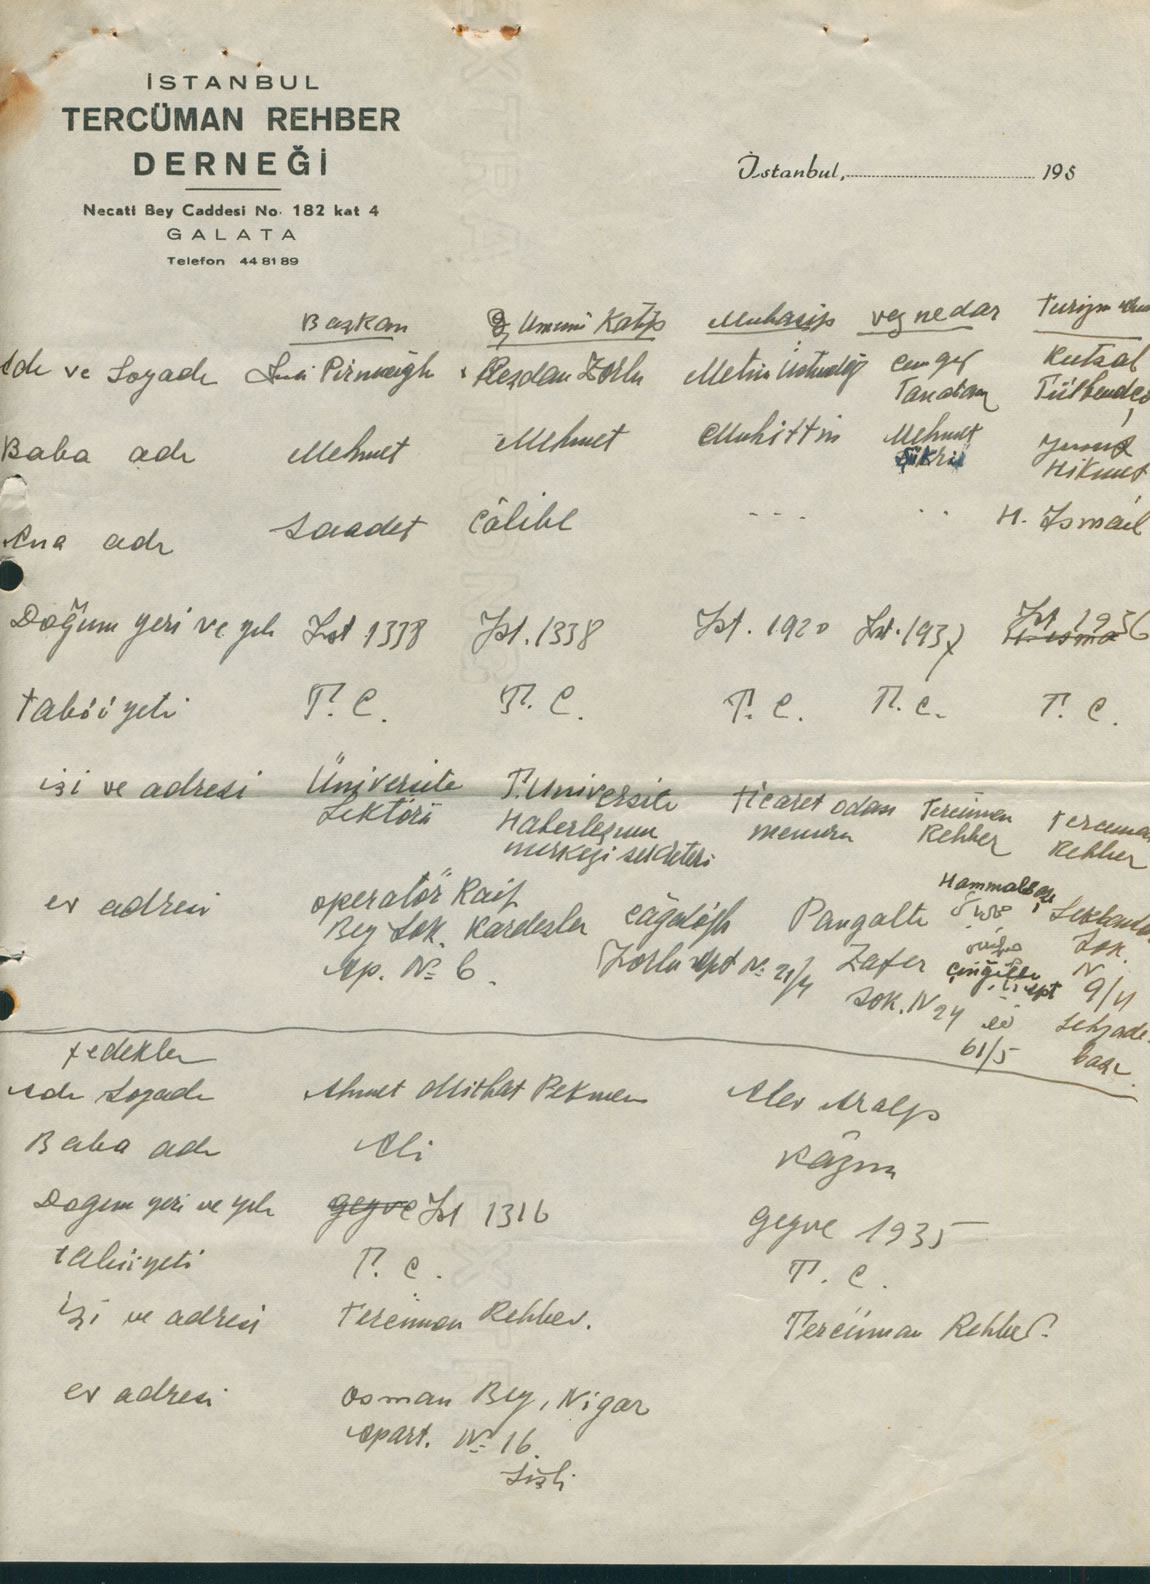 İSTANBUL
TERCÜMAN REHBER
DERNEĞİ
Necati Bey Caddesi No. 182 kat 4
GALATA
Telefon 44 81 89
İstanbul, 195
Başkan Umumi Katip Muhasip veznedar Turizm
Adı ve Soyadı Rezdan Zorlu Metin Cengiz Kutsal
Tanatam
Baba adı Mehmet Mehmet Muhittin Mehmet
Şükrü Hikmet
Ana adı Saadet Câlibe - - - - - H. İsmail
Doğum yeri ve yılı İst 1338 İst. 1338 İst. 1920 İst. 1937 İst 1936
tabiiyeti T. C. T. C. T. C. T. C. T. C.
işi ve adresi Üniversite T. Üniversite ticaret odası Tercüman Tercüman
Lektörü Haberleşme memuru Rehber Rehber
merkezi sekreteri
ev adresi operatör Raif Cağaloğlu Pangaltı Hammalbaşı
Bey Sok. Kardeşler Zorlu apt No. 21/4 Zafer Sok.
Ap. No 6. Sok. N 24 apt N 9/11
61/5 Şehzade-
başı
yedekler
Adı Soyadı Ahmet Mithat Pekmen Alev Aralp
Baba adı Ali Kâzım
Doğum yeri ve yılı geyve İst 1316 geyve 1935
tabiiyeti T. C. T. C.
işi ve adresi Tercüman Rehber. Tercüman Rehber.
ev adresi Osman Bey, Nigar
apart. No 16.
Şişli